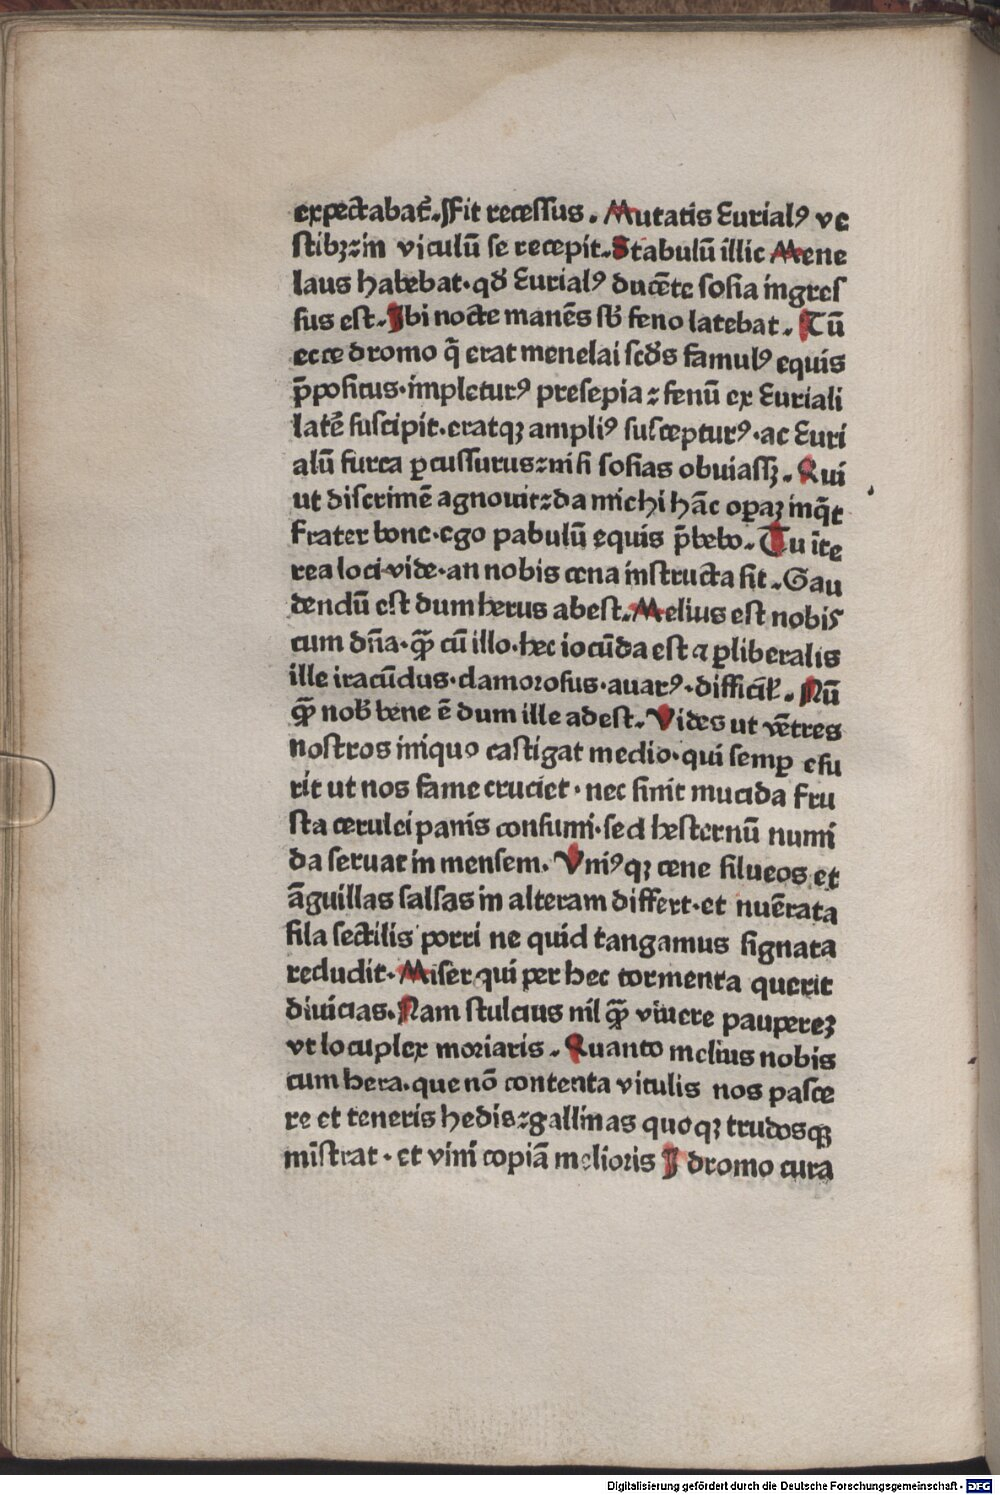 expectabat᷑. Fit recessus. Mutatis Eurialꝰ ve
stibꝫ⁊in viculū se recepit. Stabulū illic Mene
laus habebat·qđ Eurialꝰ ducēte sosia ingres
sus est. Ibi nocte manēs sb̄ feno latebat. Tū
ecce dromo q̄ erat menelai scđs famulꝰ equis
p̄positus·impleturꝰ presepia ⁊ fenū ex Euriali
late᷑ suscipit·eratqꝫ ampliꝰ suscepturꝰ·ac Euri
alū furca ꝑcussurus⁊nisi sosias obuiassꝫ. Qui
ut discrimē agnouit⁊da michi hāc oꝑaꝫ inq̄t
frater bone·ego pabulū equis p̄bebo. Tu īte
rea loci vide·an nobis cena instructa sit. Gau
dendū est dum herus abest. Melius est nobis
cum dn̄a·qꝫ̄ cū illo·hec iocūda est ⁊ ꝑliberalis
ille iracūdus·clamorosus·auarꝰ·difficil̛. Nū
qꝫ̄ nob̛ bene ē dum ille adest. Vides ut vētres
nostros iniquo castigat medio·qui semꝑ esu
rit ut nos fame cruciet·nec sinit mucida fru
sta cerulei panis consumi·sed hesternū numi
da seruat in mensem. Vniꝰqꝫ cene silueos et
āguillas salsas in alteram differt·et nuērata
fila sectilis porri ne quid tangamus signata
recludit. Miser qui per hec tormenta querit
diuicias. Nam stulcius nil qꝫ̄ viuere paupereꝫ
vt locuplex moriaris. Quanto melius nobis
cum hera·que nō contenta vitulis nos pasce
re et teneris hedis⁊gallinas quoqꝫ trudosqꝫ
mīstrat·et vini copiā melioris I dromo cura
Digitalisierung gefördert durch die Deutsche Forschungsgemeinschaft - DFG